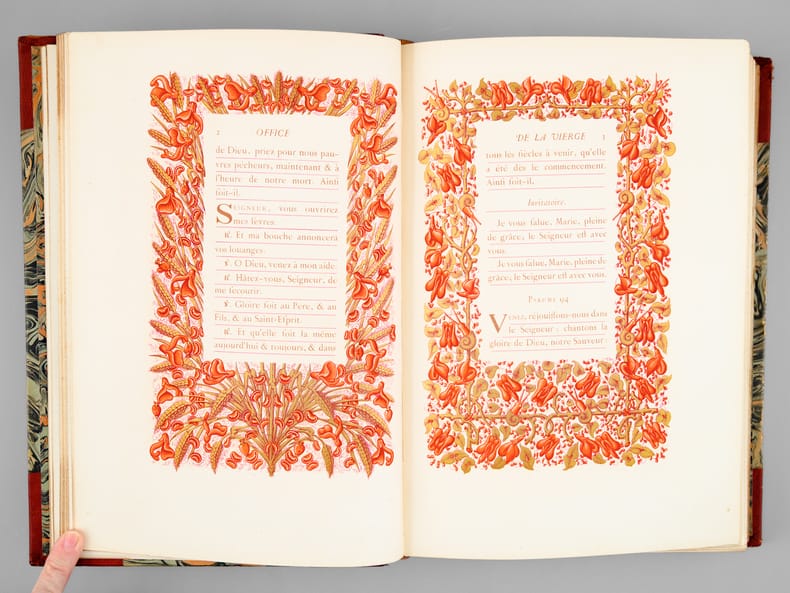 2 OFFICE
de Dieu, priez pour nous pau-
vres pécheurs, maintenant & à
l'heure de notre mort. Ainſi
ſoit-il.
SEIGNEUR, vous ouvrirez
mes lèvres.
℟. Et ma bouche annoncera
vos louanges.
℣. O Dieu, venez à mon aide.
℟. Hâtez-vous, Seigneur, de
me ſecourir.
℣. Gloire ſoit au Pere, & au
Fils, & au Saint-Eſprit.
℟. Et qu'elle ſoit la même
aujourd'hui & toujours, & dans
DE LA VIERGE 3
tous les ſiècles à venir, qu'elle
a été dès le commencement.
Ainſi ſoit-il.
Invitatoire.
Je vous ſalue, Marie, pleine
de grâce, le Seigneur eſt avec
vous.
Je vous ſalue, Marie, pleine de
grâce, le Seigneur eſt avec vous.
PSEAUME 94
VENEZ, réjouiſſons-nous dans
le Seigneur; chantons la
gloire de Dieu, notre Sauveur